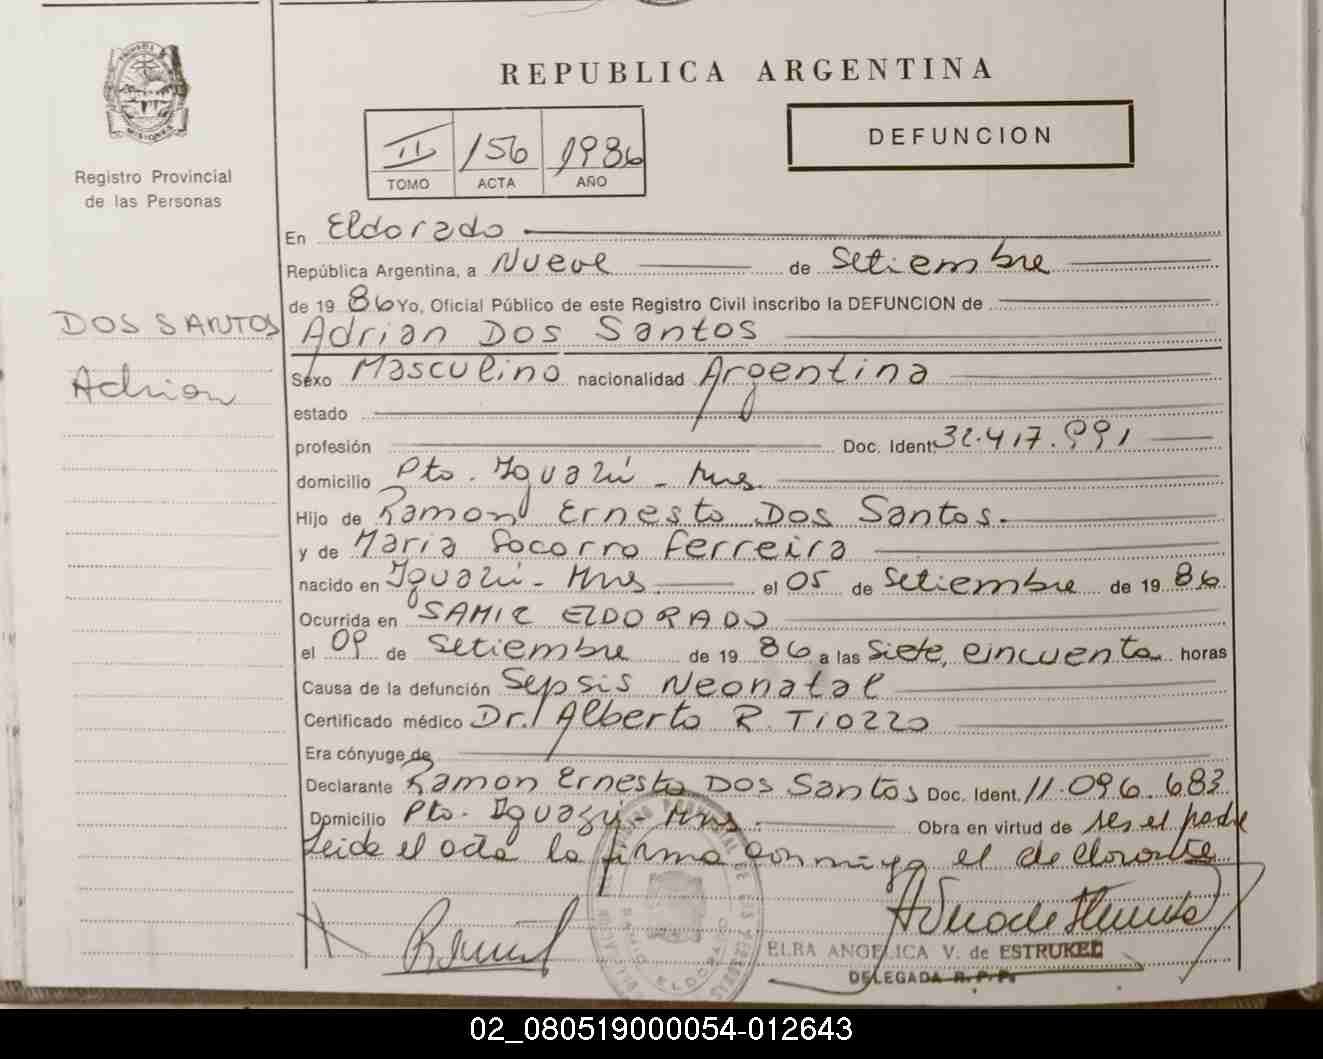 REPUBLICA ARGENTINA
DEFUNCION
II 156 1986
TOMO ACTA AÑO
Registro Provincial
de las Personas
DOS SANTOS
Adrian
En Eldorado
República Argentina, a Nueve de Setiembre
de 19 86 Yo, Oficial Público de este Registro Civil inscribo la DEFUNCION de
Adrian Dos Santos
Sexo Masculino nacionalidad Argentina
estado
profesión Doc. Ident. 32.417.991
domicilio Pto. Iguazú - Mns.
Hijo de Ramon Ernesto Dos Santos.
y de Maria Socorro Ferreira
nacido en Iguazú - Mns. el 05 de Setiembre de 19 86.
Ocurrida en SAMIC ELDORADO
el 09 de Setiembre de 19 86 a las Siete, cincuenta horas
Causa de la defunción Sepsis Neonatal
Certificado médico Dr. Alberto R. Tiozzo
Era cónyuge de
Declarante Ramon Ernesto Dos Santos Doc. Ident. 11.096.683
Domicilio Pto. Iguazú - Mns. Obra en virtud de ser el padre
Leida el acta la firma conmigo el declarante
ELBA ANGELICA V. de ESTRUKEL
DELEGADA R. P. P.
02_080519000054-012643